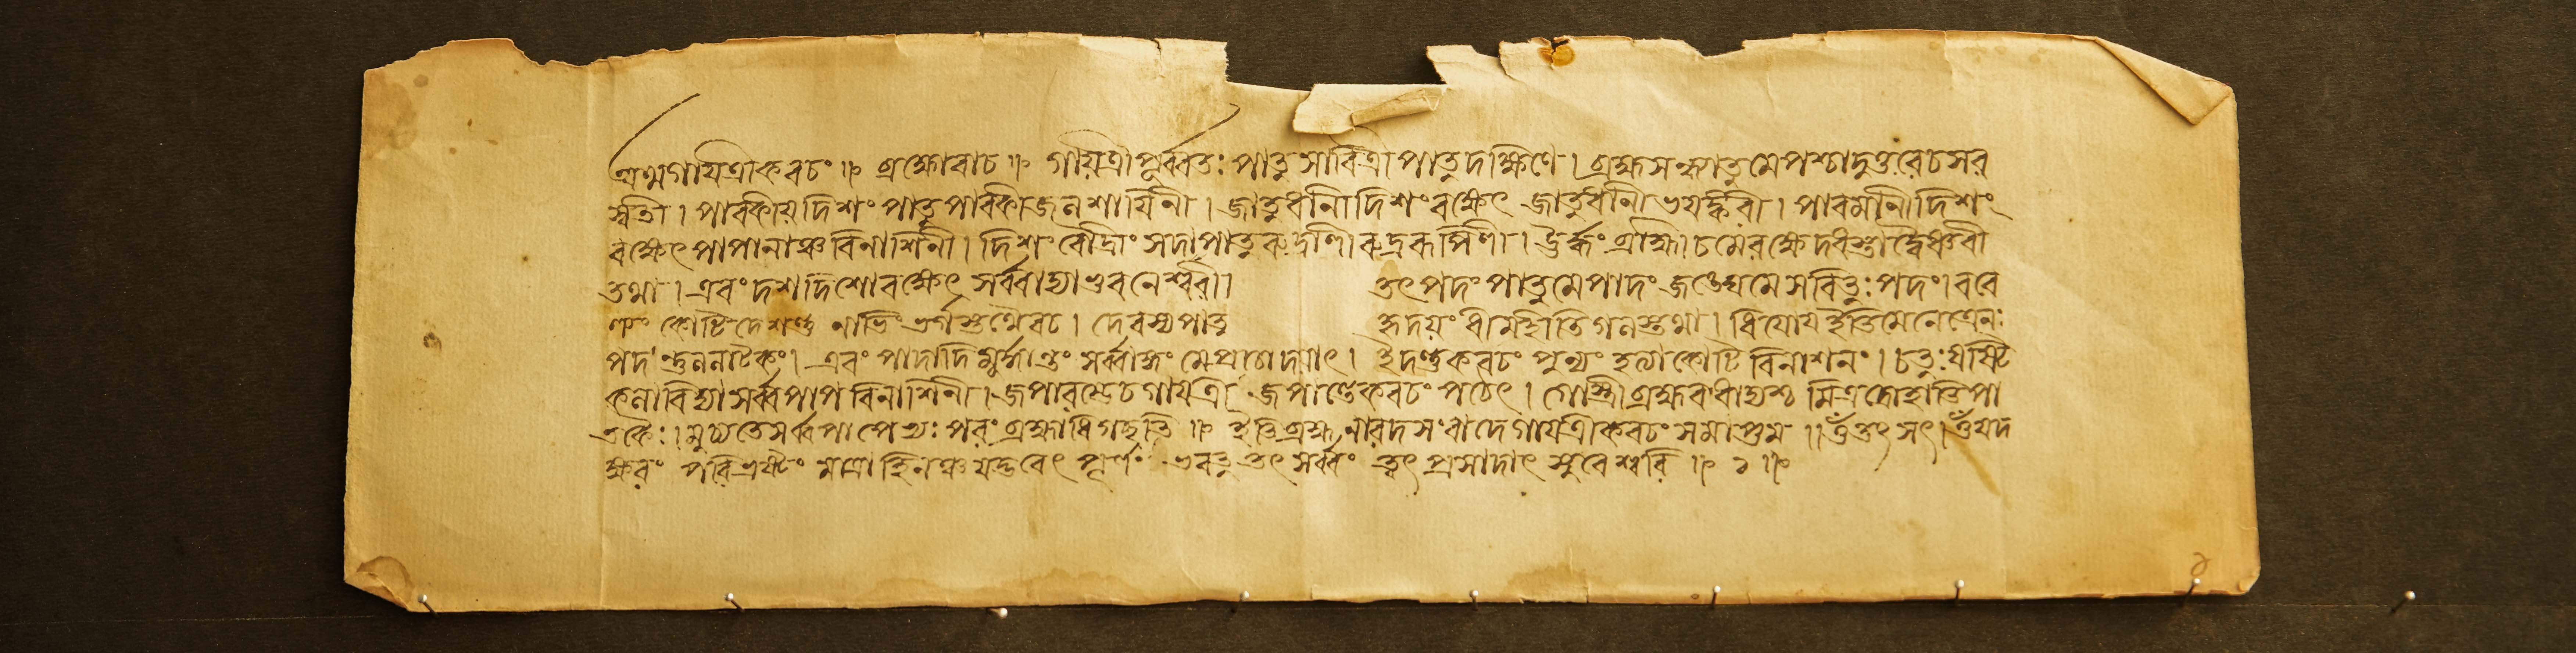 অথ গায়ত্রীকবচং ॥ ব্রহ্মোবাচ ॥ গায়ত্রী পূর্ব্বতঃ পাতু সাবিত্রী পাতু দক্ষিণে । ব্রহ্মসন্ধ্যাতু মে পশ্চাদুত্তরে চ সর
স্বতী । পাবকীয় দিশং পাতু পাবকী জলশায়িনী । জাতুধানী দিশং রক্ষেৎ জাতুধানী ভয়ঙ্করী । পাবমানী দিশং
রক্ষেৎ পাপানাঞ্চ বিনাশিনী । দিশং রৌদ্রীং সদাপাতু রুদ্রাণী রুদ্ররূপিণী । ঊর্দ্ধং ব্রাহ্মী চ মে রক্ষেদধস্তাদ্বৈষ্ণবী
তথা । এবং দশদিশো রক্ষেৎ সর্ব্ববাদ্যা ভুবনেশ্বরী । তৎপদং পাতু মে পাদং জঙ্ঘে মে সবিতুঃ পদং । বরে
ণ্যং কটিদেশন্তু নাভিং ভর্গস্তথৈবচ । দেবস্য পাতু হৃদয়ং ধীমহীতি গলস্তথা । ধিয়োয ইতি মে নেত্রে নঃ
পদন্তু ললাটকং । এবং পাদাদি মূর্দ্ধান্তং সর্ব্বাঙ্গং মে প্রচোদয়াৎ । ইদন্তু কবচং পুণ্যং হত্যাকোটি বিনাশনং । চতুঃষষ্টি
কলাবিদ্যা সর্ব্বপাপ বিনাশিনী । জপারম্ভে চ গায়ত্রী জপান্তে কবচং পঠেৎ । গোস্ত্রী ব্রহ্মবধাদ্যশ্চ মিত্রদ্রোহাতিপা
তকৈঃ । মুচ্যতে সর্ব্বপাপেভ্যঃ পরং ব্রহ্মাধিগচ্ছতি ॥ ইতি ব্রহ্মনারদসংবাদে গায়ত্রীকবচং সমাপ্তম ॥ ওঁ তৎ সৎ । ওঁ যদ
ক্ষরং পরিভ্রষ্টং মাত্রাহিনঞ্চ যদ্ভবেৎ পূর্ণং ভবতু তৎ সর্ব্বং ত্বৎপ্রসাদাৎ সুরেশ্বরি ॥ ১ ॥
২